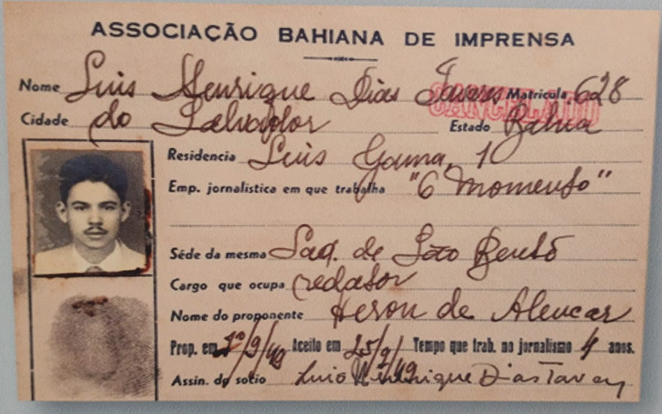 ASSOCIAÇÃO BAHIANA DE IMPRENSA
Nome Luis Henrique Dias Tavares Matricula 628
CANCELADO
Cidade do Salvador Estado Bahia
Residencia Luis Gama, 1
Emp. jornalistica em que trabalha "O Momento"
Séde da mesma Lad. de São Bento
Cargo que ocupa redator
Nome do proponente Heron de Alencar
Prop. em 1º/9/49 Aceito em 25/9/49 Tempo que trab. no jornalismo 4 anos.
Assin. do socio Luis Henrique Dias Tavares